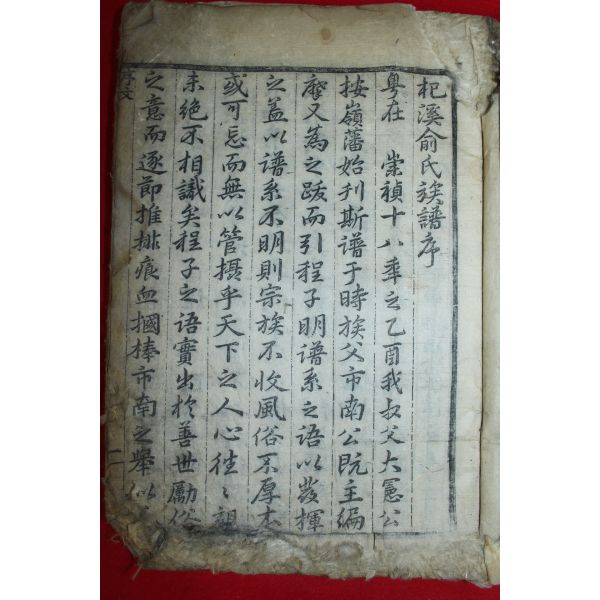 杞溪俞氏族譜序
粤在 崇禎十八年之乙酉我叔父大憲公
按嶺藩始刋斯譜于時族父市南公既主編
摩又為之跋而引程子明譜系之語以發揮
之盖以譜系不明則宗族不收風俗不厚本
或可忘而無以管攝乎天下之人心徃〻親
未絶不相識矣程子之語實出於善世勵俗
之意而逐節推排痕血摑棒市南之舉似
序文